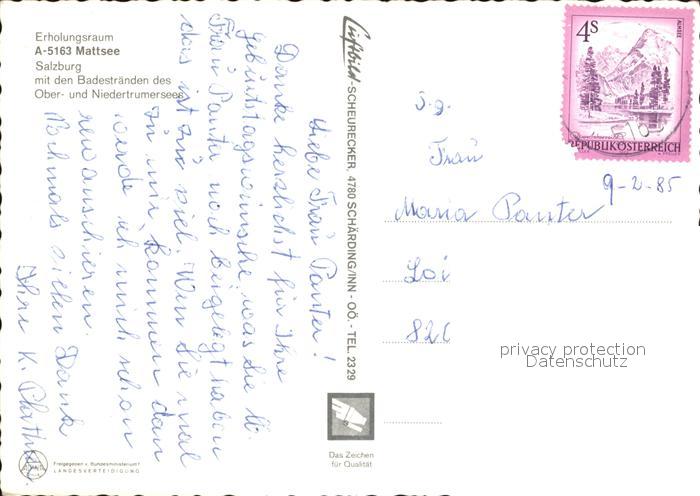 Erholungsraum
A-5163 Mattsee
Salzburg
mit den Badestränden des
Ober- und Niedertrumersees
Liebe Frau Panter!
Danke herzlichst für Ihre
Geburtstagswünsche was Sie lb.
Frau Panter noch beigelegt haben
das ist zu viel. Wen Sie mal
zu mir kommen dan
werde ich mich schon
rewanschieren.
Nochmals vielen Dank
Ihre K.
Luftbild-SCHEURECKER, 4780 SCHÄRDING/INN - OÖ. - TEL. 2329
4S
ALMSEE
REPUBLIK ÖSTERREICH
9-2-85
S.g.
Frau
Maria Panter
Loi
820
privacy protection
Datenschutz
Das Zeichen
für Qualität
Freigegeben v. Bundesministerium f.
LANDESVERTEIDIGUNG